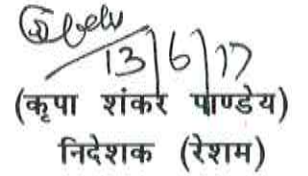 13/6/17
(कृपा शंकर पाण्डेय)
निदेशक (रेशम)